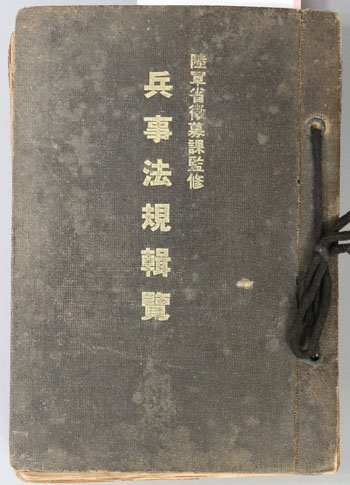 陸軍省徴募課監修
兵事法規輯覽